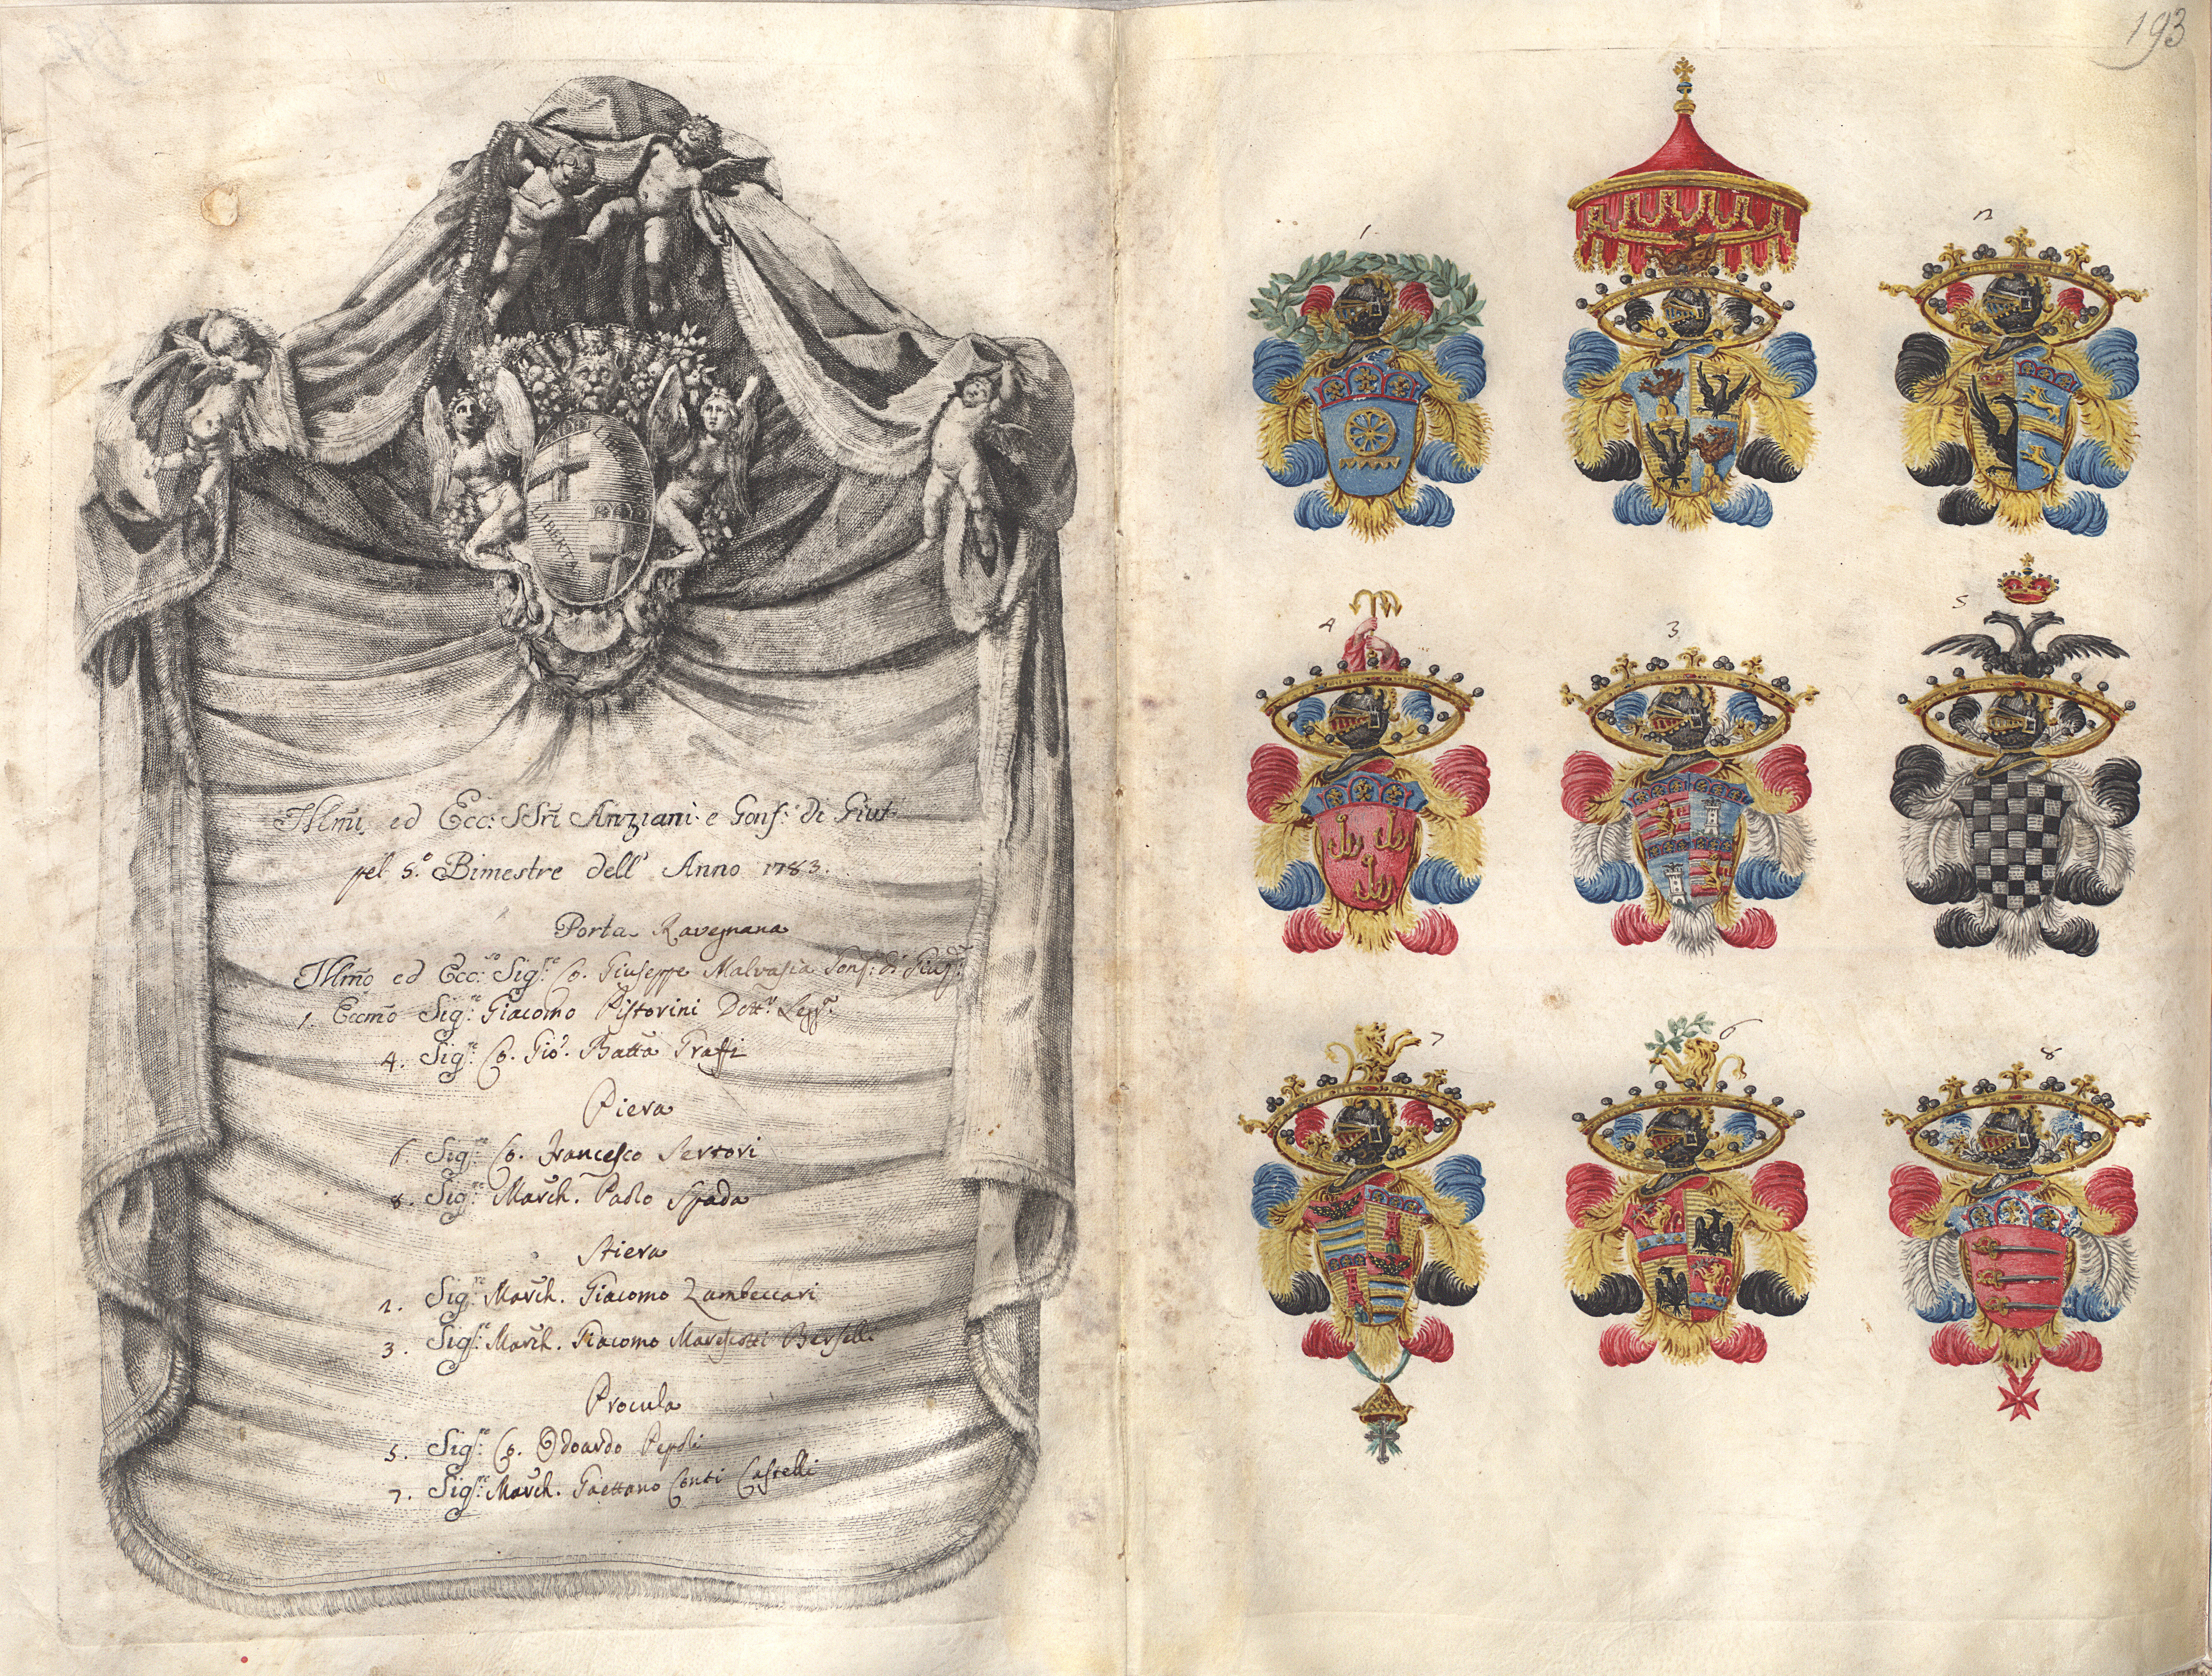 193
LIBERTAS
LIBERTAS
Illm̃i ed Ecc: SSri Anziani e Gonf: di Giut
pel 5.º Bimestre dell' Anno 1783.
Porta Ravegnana
Illm̃o ed Ecc:mo Sig:re Co. Giuseppe Malvasia Gonf: di
1. Eccm̃o Sig:re Giacomo Pistorini Dott:r Legg:e
4. Sig:re Co. Gio: Batta Graffi
Piera
6. Sig:re Co. Francesco Sertori
8. Sig:re March. Paolo Spada
Stiera
2. Sig:re March. Giacomo Zambeccari
3. Sig:re March. Giacomo Marescotti Berselli
Procula
5. Sig:re Co. Odoardo Pepoli
7. Sig:re March. Gaettano Conti Castelli
1
2
4
3
5
7
6
8